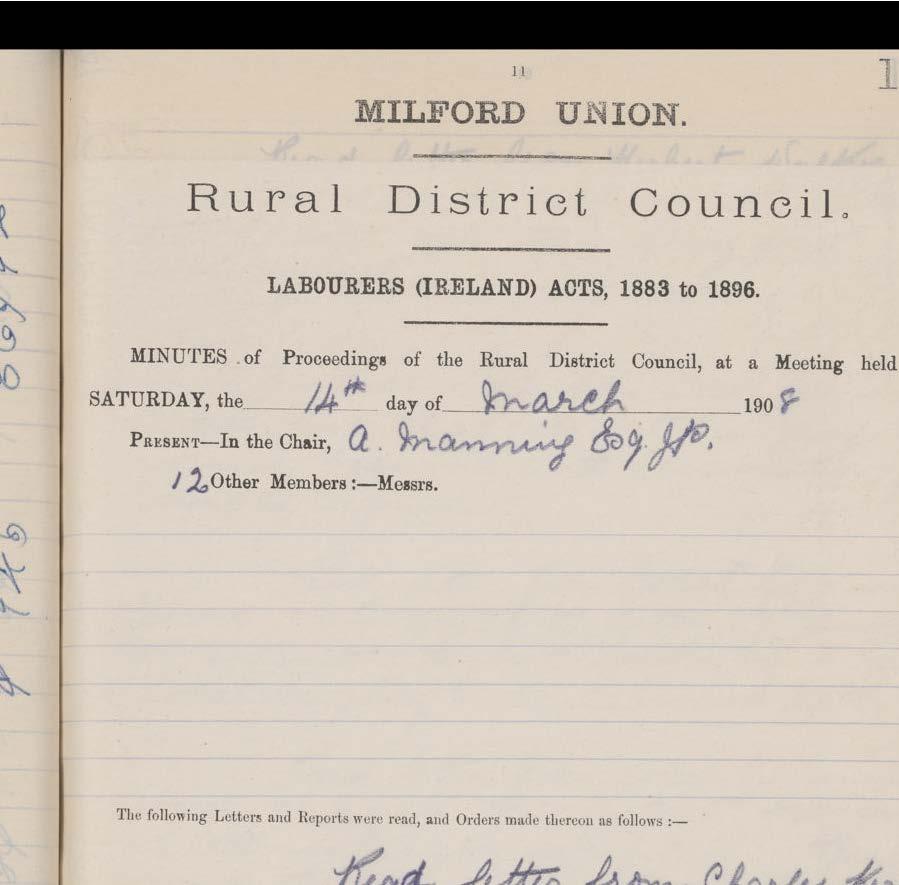 11
1
MILFORD UNION.
Rural District Council.
LABOURERS (IRELAND) ACTS, 1883 to 1896.
MINUTES of Proceedings of the Rural District Council, at a Meeting held
SATURDAY, the 14th day of March 1908
PRESENT—In the Chair, A. Manning Esq. J.P.
12 Other Members :—Messrs.
The following Letters and Reports were read, and Orders made thereon as follows :—
Read letter from Charles